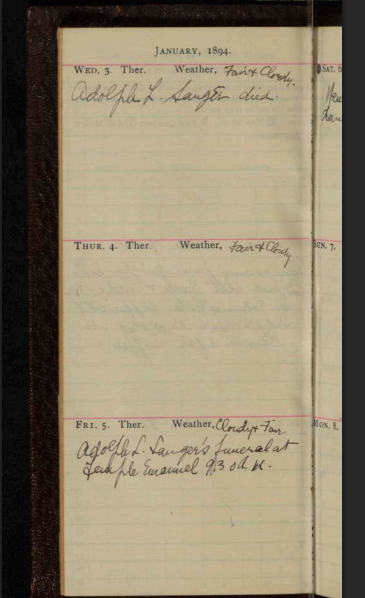 JANUARY, 1894.
WED. 3. Ther. Weather, Fair & Cloudy.
Adolph L. Sanger died.
THUR. 4. Ther. Weather, Fair & Cloudy
FRI. 5. Ther. Weather, Cloudy & Fair
Adolph L. Sanger's funeral at
Temple Emanuel 9.30
SAT. 6
SUN. 7.
MON. 8.